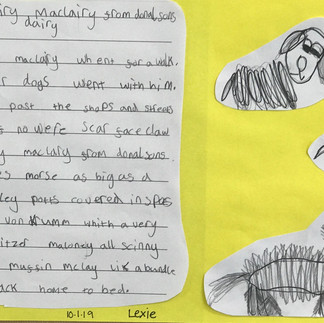 iry maclairy from donalsons
dairy
maclairy whent for a walk.
r dogs went with him.
past the shops and streats
t no were scar face claw
y maclary from donalsons.
es morse as big as a
ley potts covered in spos
von krumm whith a very
itzel maloney all scinny
muffin mclay a bundle
ack home to bed.
10.1.19 Lexie